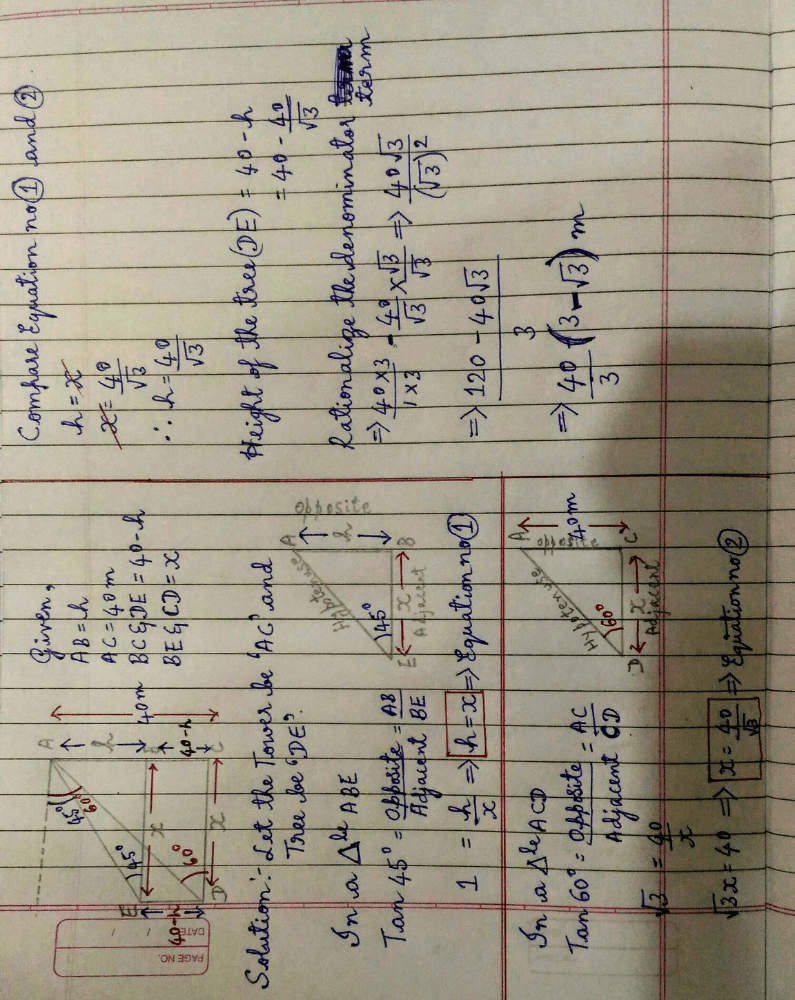 PAGE NO.
DATE / /
A
45°
60°
h
40m
E
45°
x
B
40-h
40-h
60°
D
x
C
Given,
AB = h
AC = 40m
BC & DE = 40-h
BE & CD = x
Solution:- Let the Tower be 'AC' and
Tree be 'DE'.
In a Δle ABE
Tan 45° = Opposite/Adjacent = AB/BE
1 = h/x => h = x => Equation no ①
A
Hypotenuse
h
Opposite
45°
E
x
B
Adjacent
In a Δle ACD
Tan 60° = Opposite/Adjacent = AC/CD
√3 = 40/x
√3x = 40 => x = 40/√3 => Equation no ②
A
Hypotenuse
Opposite
40m
60°
D
x
C
Adjacent
Compare Equation no ① and ②
h = x
x = 40/√3
∴ h = 40/√3
Height of the tree (DE) = 40 - h
= 40 - 40/√3
Rationalize the denominator term
=> 40 × 3/1 × 3 - 40/√3 × √3/√3 => 40√3/(√3)2
=> 120 - 40√3/3
=> 40/3 (3 - √3) m